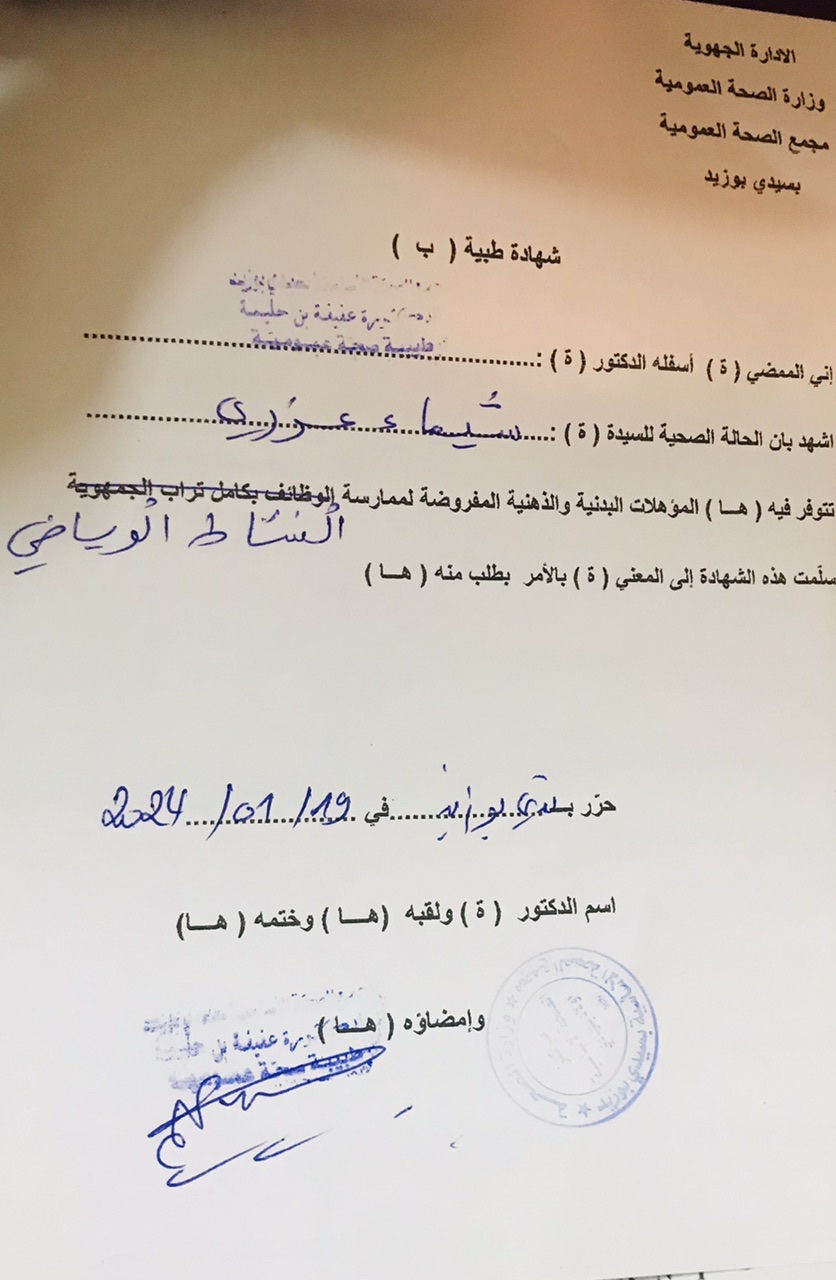 الادارة الجهوية
وزارة الصحة العمومية
مجمع الصحة العمومية
بسيدي بوزيد
شهادة طبية ( ب )
عفيفة بن حليمة
طبيبة صحة عمومية
إني الممضي ( ة ) أسفله الدكتور ( ة ) :
اشهد بان الحالة الصحية للسيدة ( ة ) : شيماء عزري
تتوفر فيه ( هـا ) المؤهلات البدنية والذهنية المفروضة لممارسة الوظائف بكامل تراب الجمهورية
النشاط الرياضي
سلّمت هذه الشهادة إلى المعني ( ة ) بالأمر بطلب منه ( هـا )
حرّر بـ سيدي بوزيد في 19/01/2024
اسم الدكتور ( ة ) ولقبه ( هـا ) وختمه ( هـا )
وإمضاؤه ( هـا )
عفيفة بن حليمة
طبيبة صحة عمومية